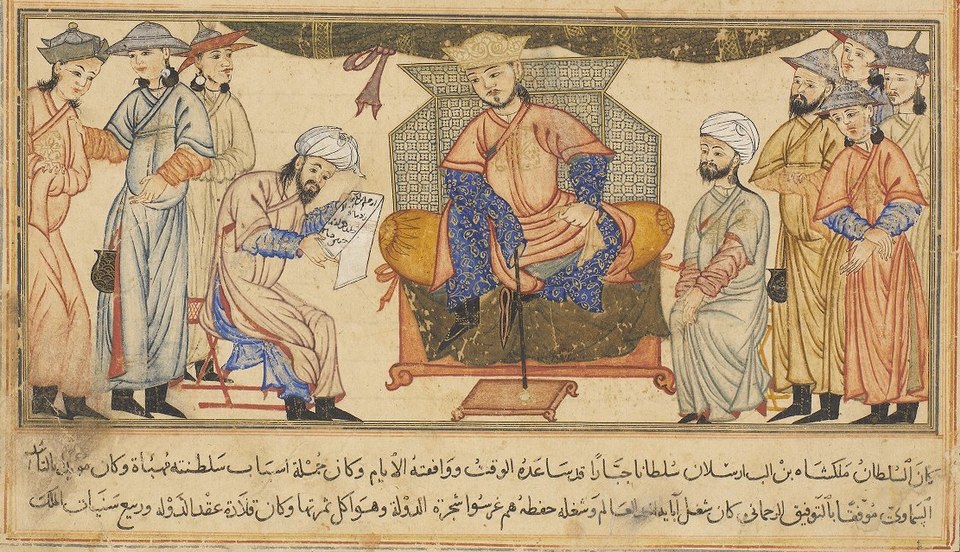 كان السلطان ملكشاه بن الب ارسلان سلطانا جبارا قد ساعده الوقت ووافقته الايام وكانى جملة اسباب سلطنته مهياة وكان مويد بالتا
السماوى موفقا بالتوفيق الرحمانى كان شغل آبايه العالم وشغله حفظه هم غرسوا شجرة الدولة وهو اكل ثمرتها وكان قلادة عقد الدوله وربيع سنيات الملك